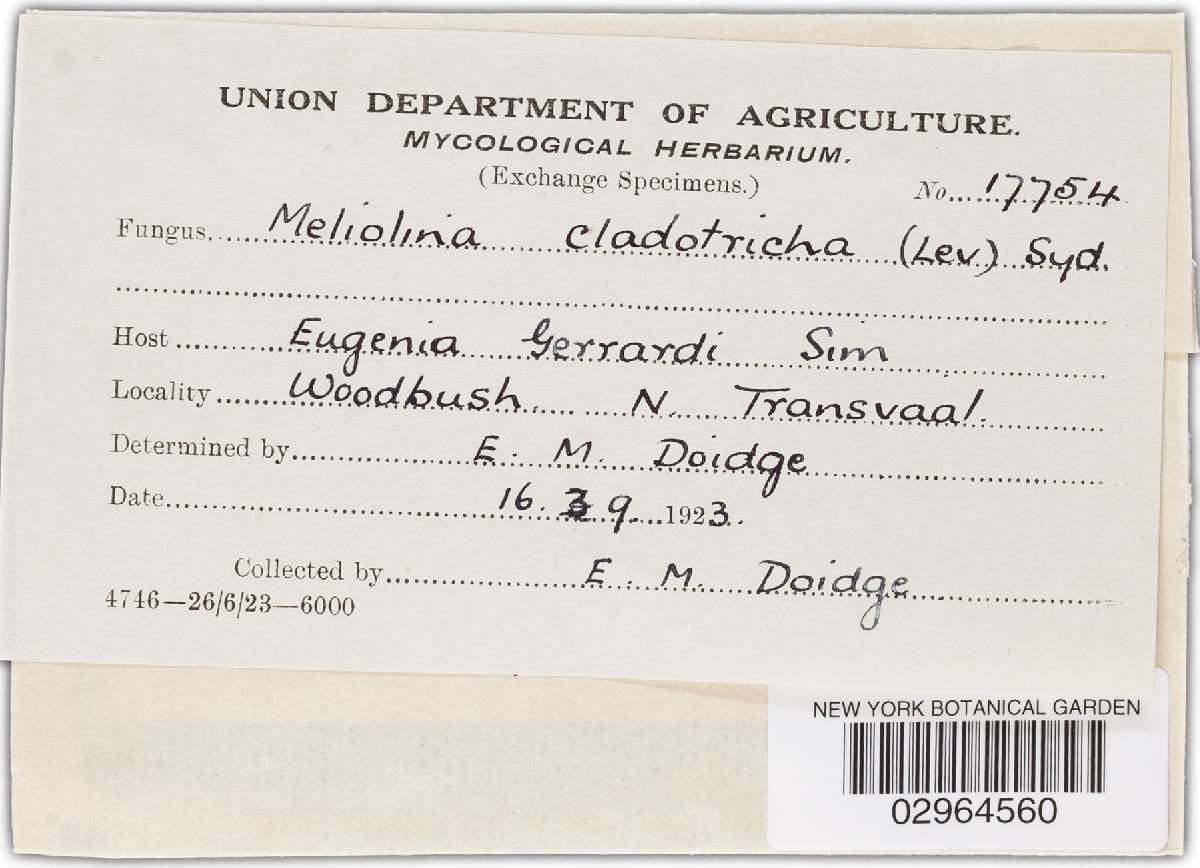 UNION DEPARTMENT OF AGRICULTURE.
MYCOLOGICAL HERBARIUM.
(Exchange Specimens.)
No. 17754
Fungus. Meliolina cladotricha (Lev.) Syd.
Host Eugenia Gerrardi Sim
Locality Woodbush N Transvaal.
Determined by E. M. Doidge
Date 16. 9. 1923.
Collected by E. M. Doidge
4746—26/6/23—6000
NEW YORK BOTANICAL GARDEN
02964560